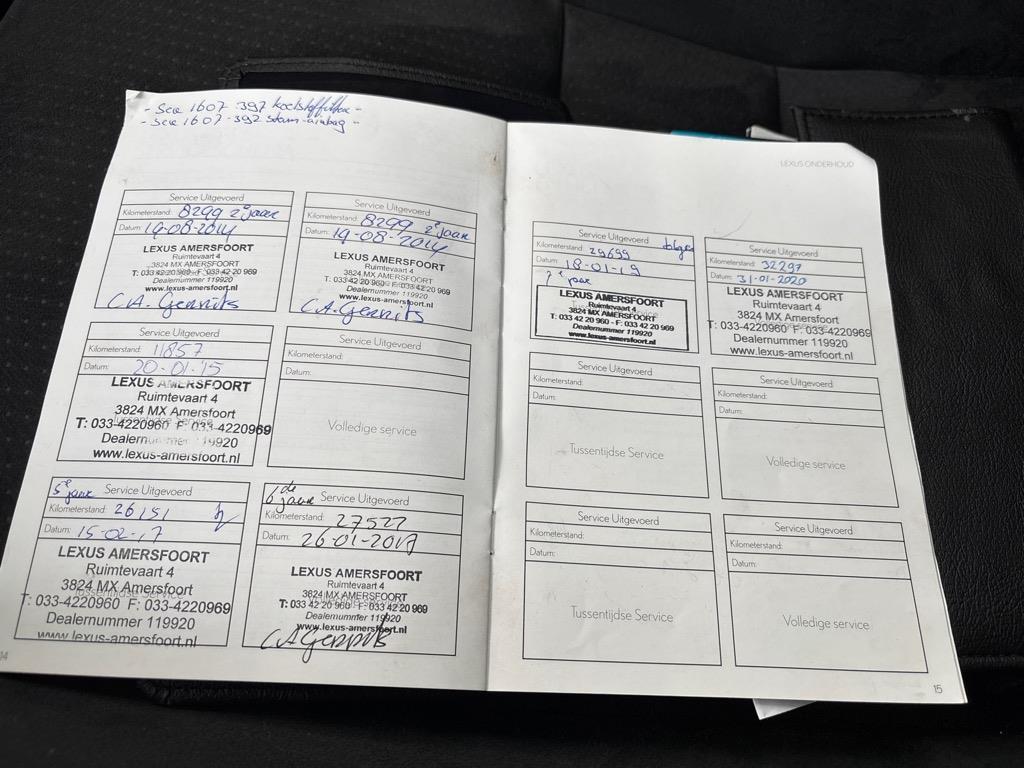 - See 1607-397 koolstoffilter -
- See 1607-392 stam-airbag -
Service Uitgevoerd
Kilometerstand: 8299 2e jaar
Datum: 19-08-2014
LEXUS AMERSFOORT
Ruimtevaart 4
3824 MX AMERSFOORT
T: 033 42 20 960 - F: 033 42 20 969
Dealernummer 119920
www.lexus-amersfoort.nl
C.A. Gerrits
Service Uitgevoerd
Kilometerstand: 8299 2e jaar
Datum: 19-08-2014
LEXUS AMERSFOORT
Ruimtevaart 4
3824 MX AMERSFOORT
T: 033 42 20 960 - F: 033 42 20 969
Dealernummer 119920
www.lexus-amersfoort.nl
C.A. Gerrits
Service Uitgevoerd
Kilometerstand: 11857
Datum: 20-01-15
LEXUS AMERSFOORT
Ruimtevaart 4
3824 MX Amersfoort
Tussentijdse Service
T: 033-4220960 F: 033-4220969
Dealernummer 119920
www.lexus-amersfoort.nl
Service Uitgevoerd
Kilometerstand:
Datum:
Volledige service
5e jaar Service Uitgevoerd
Kilometerstand: 26151
Datum: 15-02-17
LEXUS AMERSFOORT
Ruimtevaart 4
3824 MX Amersfoort
Tussentijdse Service
T: 033-4220960 F: 033-4220969
Dealernummer 119920
www.lexus-amersfoort.nl
6de jaar Service Uitgevoerd
Kilometerstand: 27527
Datum: 26-01-2017
LEXUS AMERSFOORT
Ruimtevaart 4
3824 MX AMERSFOORT
T: 033 42 20 960 - F: 033 42 20 969
Dealernummer 119920
www.lexus-amersfoort.nl
C A Gerrits
14
LEXUS ONDERHOUD
Service Uitgevoerd
Kilometerstand: 29699
Datum: 18-01-19
7e jaar
LEXUS AMERSFOORT
Ruimtevaart 4
3824 MX AMERSFOORT
T: 033 42 20 960 - F: 033 42 20 969
Dealernummer 119920
www.lexus-amersfoort.nl
Service Uitgevoerd
Kilometerstand: 32297
Datum: 31-01-2020
LEXUS AMERSFOORT
Ruimtevaart 4
3824 MX Amersfoort
T: 033-4220960 F: 033-4220969
Dealernummer 119920
www.lexus-amersfoort.nl
Service Uitgevoerd
Kilometerstand:
Datum:
Tussentijdse Service
Service Uitgevoerd
Kilometerstand:
Datum:
Volledige service
Service Uitgevoerd
Kilometerstand:
Datum:
Tussentijdse Service
Service Uitgevoerd
Kilometerstand:
Datum:
Volledige service
15